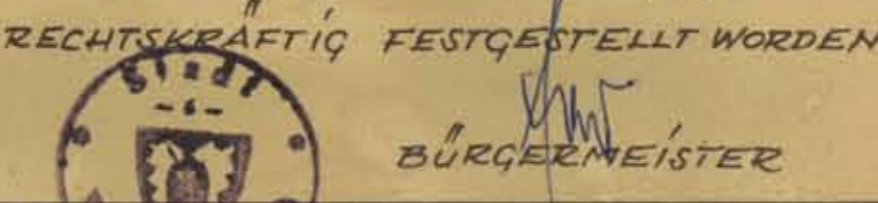 RECHTSKRÄFTIG FESTGESTELLT WORDEN
Stadt
-6-
BÜRGERMEISTER